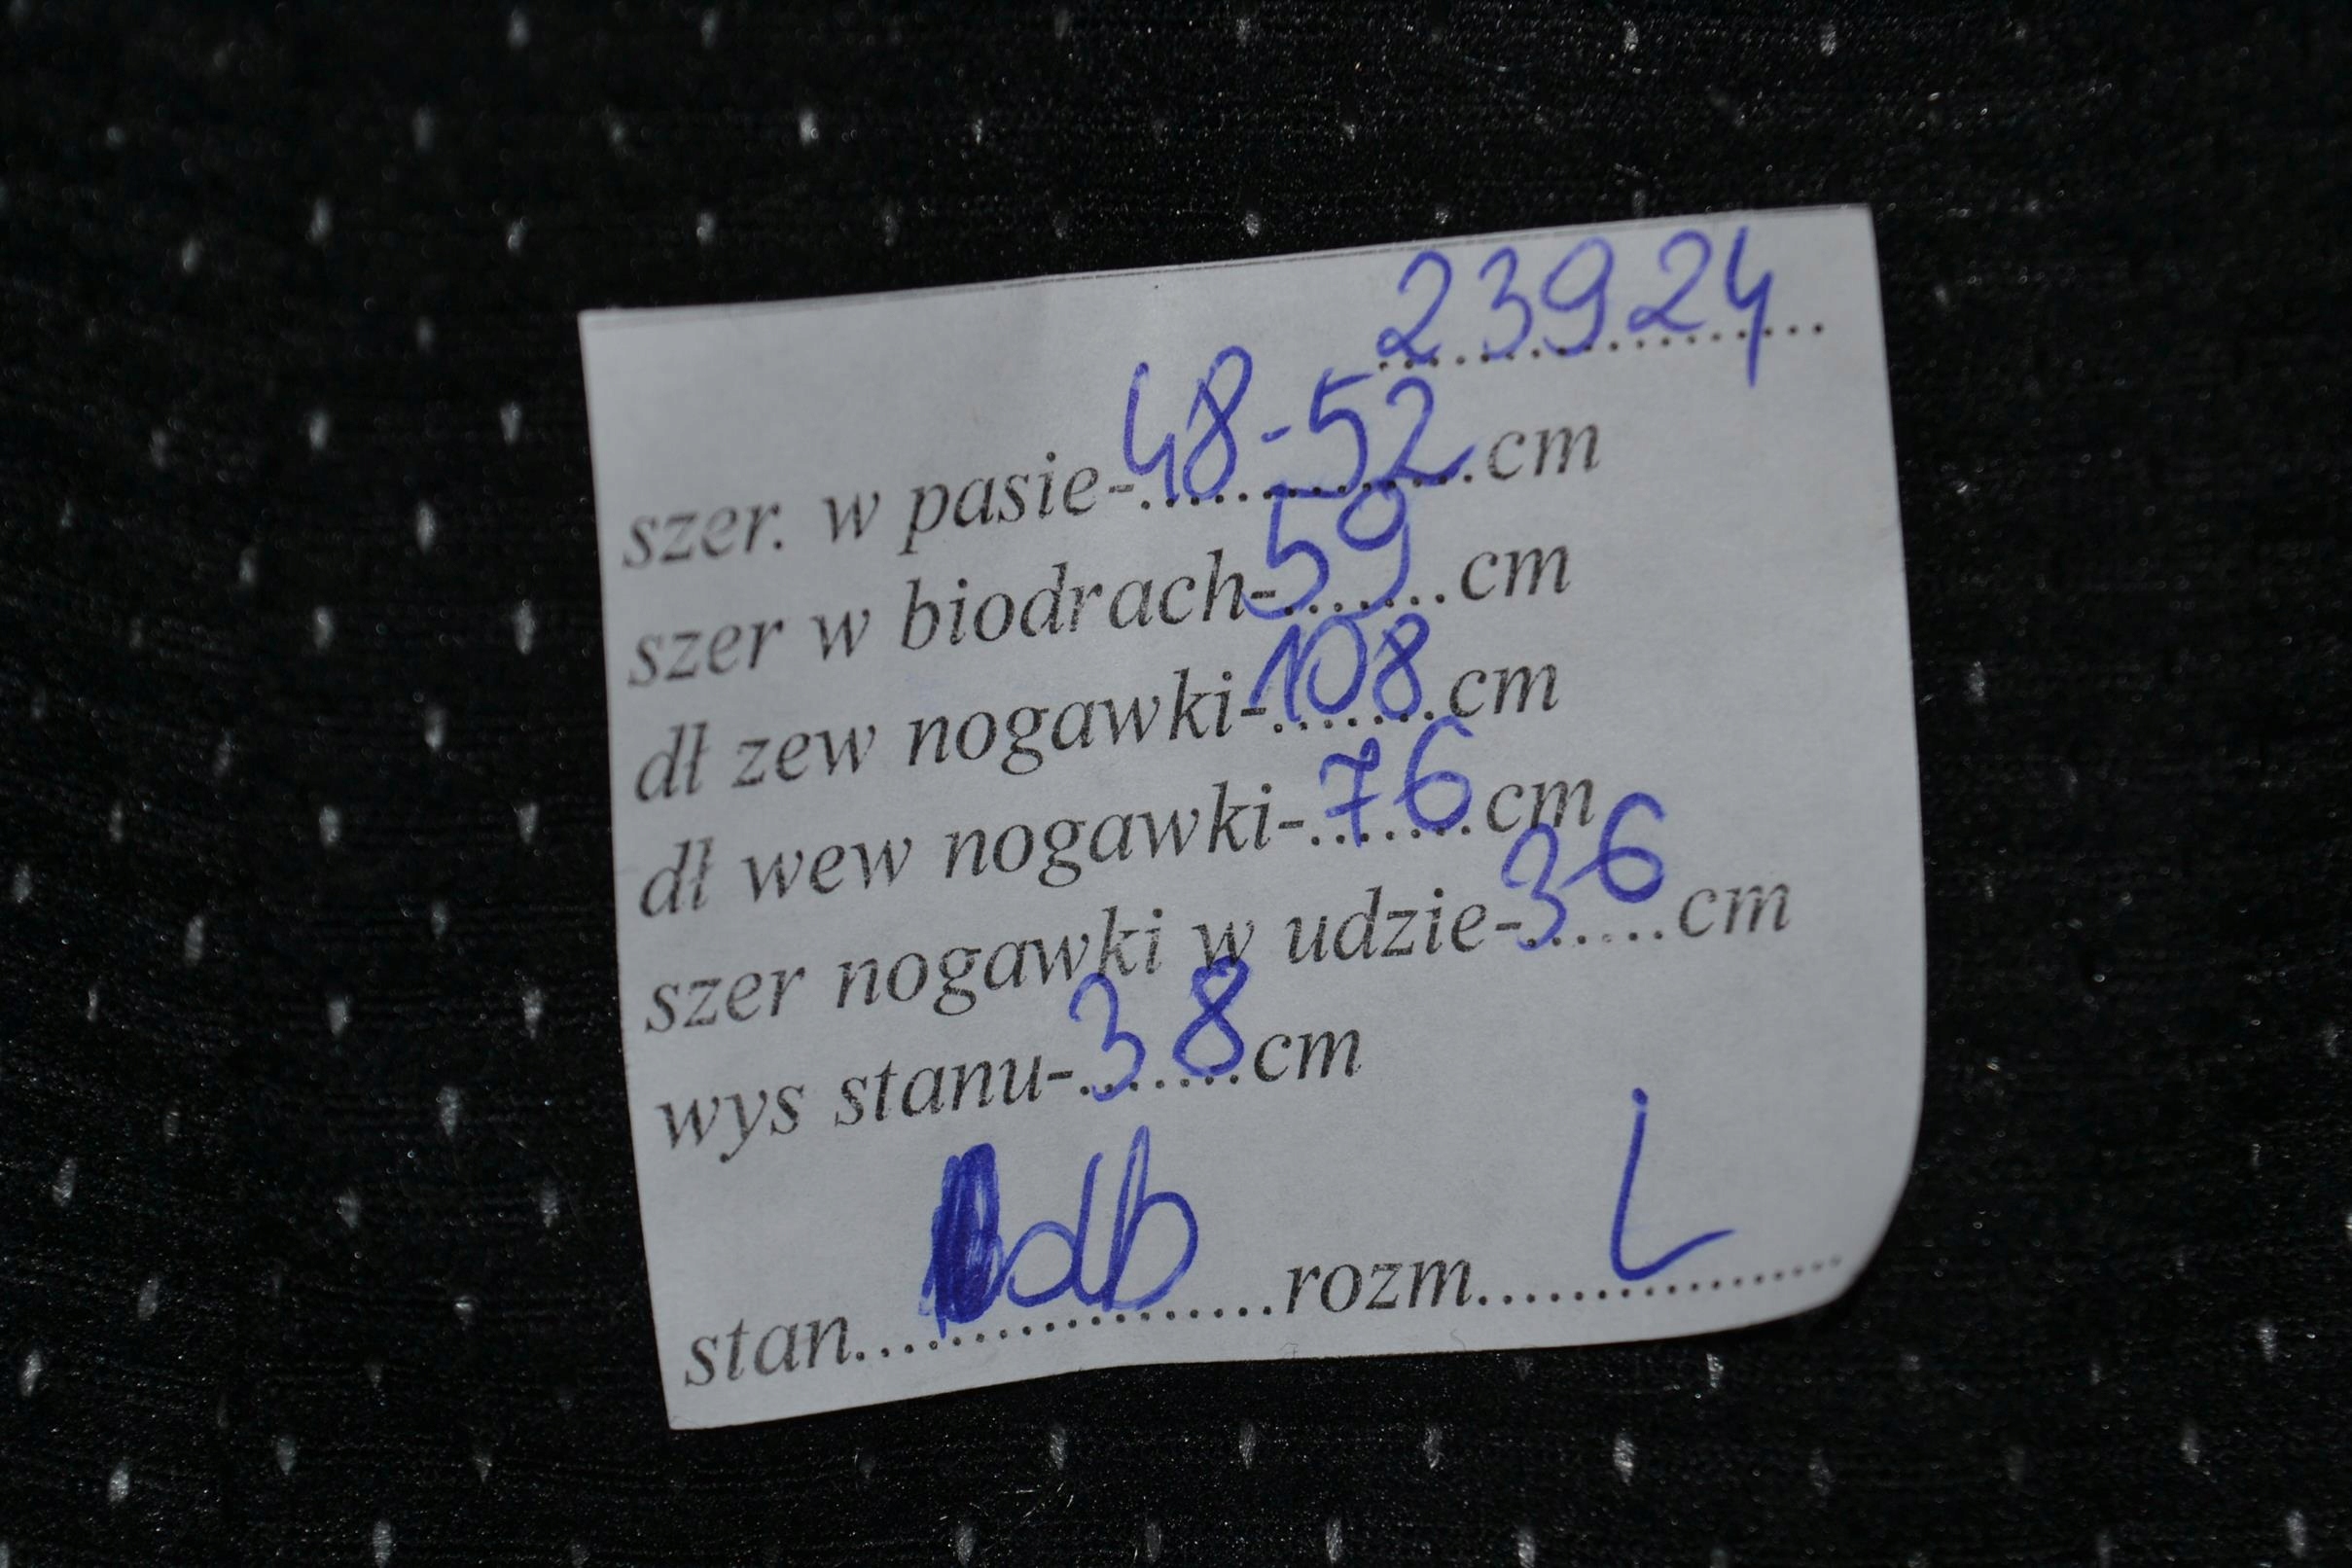 23924
szer. w pasie-48-52 cm
szer w biodrach-59 cm
dł zew nogawki-108 cm
dł wew nogawki-76 cm
szer nogawki w udzie-36 cm
wys stanu-38 cm
stan....db....rozm....L....